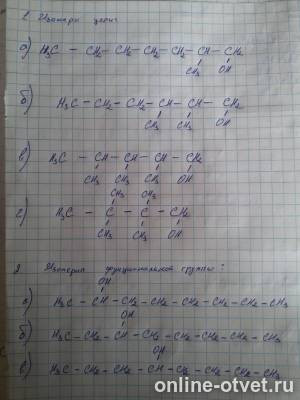 1. Изомерия цепи:
а) H₃C - CH₂ - CH₂ - CH₂ - CH₂ - CH - CH₂
CH₃ OH
б) H₃C - CH₂ - CH₂ - CH - CH - CH₂
CH₃ CH₃ OH
в) H₃C - CH - CH - CH - CH₂
CH₃ CH₃ CH₃ OH
CH₃ CH₃
г) H₃C - C - C - CH₂
CH₃ CH₃ OH
2 Изомерия функциональной группы:
OH
а) H₃C - CH - CH₂ - CH₂ - CH₂ - CH₂ - CH₂ - CH₃
OH
б) H₃C - CH₂ - CH - CH₂ - CH₂ - CH₂ - CH₂ - CH₃
OH
в) H₃C - CH₂ - CH₂ - CH - CH₂ - CH₂ - CH₂ - CH₃
online-otvet.ru